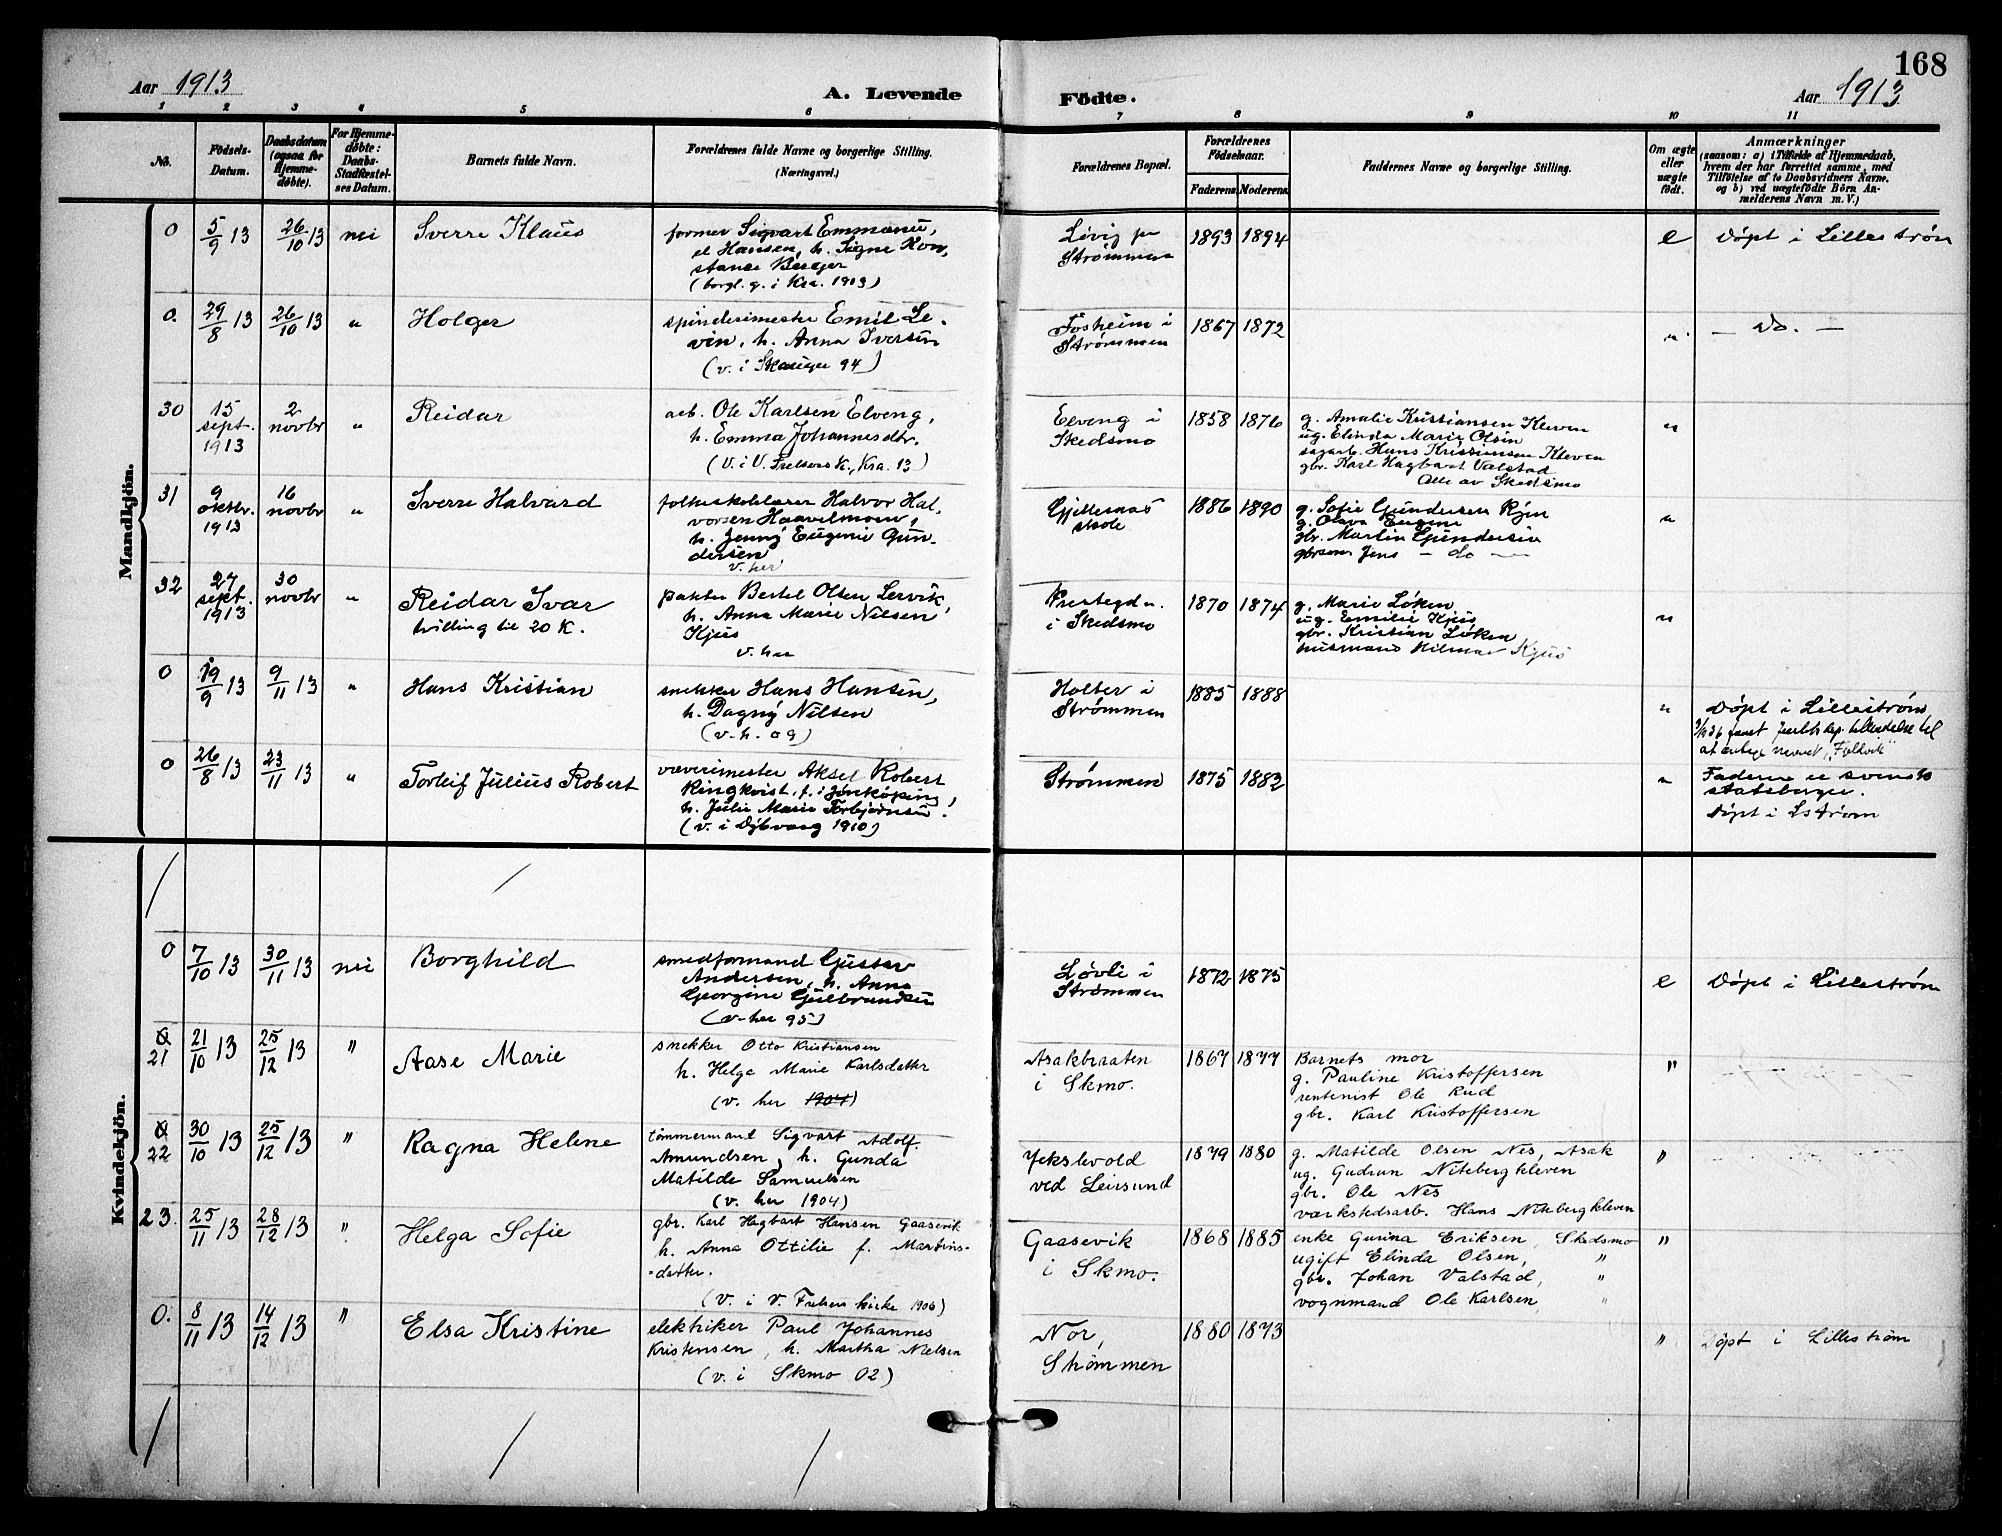 168
Aar 1913
A. Levende
Födte.
Aar 1913
1 2 3 4 5 6 7 8 9 10 11
No.
Födsels-
Datum.
Daabsdatum
(ogsaa for
Hjemme-
döbte).
For Hjemme-
döbte:
Daabs-
Stadfæstel-
ses Datum.
Barnets fulde Navn.
Forældrenes fulde Navne og borgerlige Stilling.
(Næringsvei.)
Forældrenes Bopæl.
Forældrenes
Födselsaar.
Faderens Moderens
Faddernes Navne og borgerlige Stilling.
Om ægte
eller
uægte
födt.
Anmærkninger
(saasom: a) i Tilfælde af Hjemmedaab,
hvem der har forrettet samme, med
Tilföielse af to Daabsvidners Navne,
og b) ved uægtefödte Börn An-
melderens Navn m. V.)
Mandkjön.
0 5/9 13 26/10 13 nei Sverre Klaus
former Sigvart Emmanu,
el Hansen, h. Signe Kon,
stance Berger
(borgl. g. i Kra. 1913)
Strømmen
1893 1894 e Døpt i Lillestrøm
0. 29/8 13 26/10 13 " Holger
spinderimester Emil Le-
vin, h. Anna Iversen
(v. i Skauger 94)
Fosheim i
Strømmen
1867 1872 " — Do. —
30 15 sept. 1913 2 novbr " Reidar
arb. Ole Karlsen Elveng,
h. Emma Johannesdtr.
(v. i V. Frelsers K., Kra. 13)
Elveng i
Skedsmo
1858 1876
g. Amalie Kristiansen Kleven
ug. Elinda Marie Olsen
sagarb. Hans Kristiansen Kleven
gbr. Karl Hagbart Valstad
Alle av Skedsmo
"
31 9 oktbr. 1913 16 novbr " Sverre Halvard
folkeskolelærer Halvor Hal,
vorsen Haavelmoen,
h. Jenny Eugenie Gun-
dersen
v. her
Gjelleraas
skole
1886 1890
g. Sofie Gundersen Ryen
g. Olava Eugene
gbr. Martin Gundersen
gbrsøn Jens — do —
"
32 27 sept. 1913 30 novbr " Reidar Ivar
tvilling til 20 K.
pakter Bertel Olsen Lervik,
h. Anna Marie Nilsen
Kjus
v. her
Prestegd.
i Skedsmo
1870 1874
g. Marie Løken
ug. Emilie Kjus
gbr. Kristian Løken
husmand Hilmar Kjus
"
0 19/9 13 9/11 13 " Hans Kristian
snekker Hans Hansen,
h. Dagny Nilsen
(v. h. 09)
Holter i
Strømmen
1885 1888 "
Døpt i Lillestrøm
tilladelse til
at navnet "Follvik"
0 26/8 13 23/11 13 " Torleif Julius Robert
væverimester Aksel Robert
Ringkvist, f. i Jønkøping,
h. Julie Marie Torbjørnsen.
(v. i Dybvaag 1910)
Strømmen
1875 1882 "
Faderen er svensk
statsborger.
Døpt i Lstrøm
Kvindekjön.
0 7/10 13 30/11 13 nei Borghild
smedformand Gustav
Andersen, h. Anna
Georgine Gulbrandsen
(v. her 95)
Løvli i
Strømmen
1872 1875 e Døpt i Lillestrøm
0
21 21/10 13 25/12 13 " Aase Marie
snekker Otto Kristiansen
h. Helga Marie Karlsdatter
(v. her 1904)
Asakbraaten
i Skmo.
1867 1877
Barnets mor
g. Pauline Kristoffersen
rentenist Ole Rud
gbr. Karl Kristoffersen
"
0
22 30/10 13 25/12 13 " Ragna Helene
tømmermand Sigvart Adolf
Amundsen, h. Gunda
Matilde Samuelsen
(v. her 1904)
Jekslevold
ved Leirsund
1879 1880
g. Matilde Olsen Nes, Asak
ug. Gudrun Nitebergkleven
gbr. Ole Nes
værkstedsarb. Hans Nitebergkleven
"
23. 25/11 13 28/12 13 " Helga Sofie
gbr. Karl Hagbart Hansen Gaasevik
h. Anna Ottilie f. Martins-
-datter.
(v. i V. Frelsers kirke 1906)
Gaasevik
i Skmo.
1868 1885
enke Gurina Eriksen, Skedsmo
ugift Elinda Olsen, "
gbr. Johan Valstad, "
vognmand Ole Karlsen, "
"
0. 8/11 13 14/12 13 " Elsa Kristine
elektriker Paul Johannes
Kristensen, h. Martha Nielsen
(v. i Skmo 02)
Nor,
Strømmen
1880 1873 " Døpt i Lillestrøm